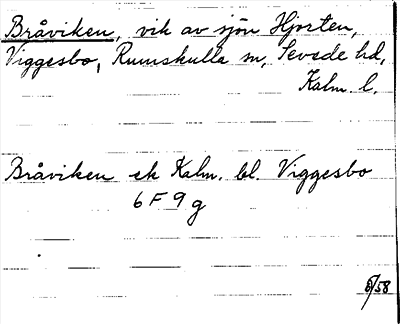 Bråviken, vik av sjön Hjorten,
Viggesbo, Rumskulla sn, Sevede hd,
Kalm. l.
Bråviken ek Kalm. bl. Viggesbo
6 F 9 g
6/58